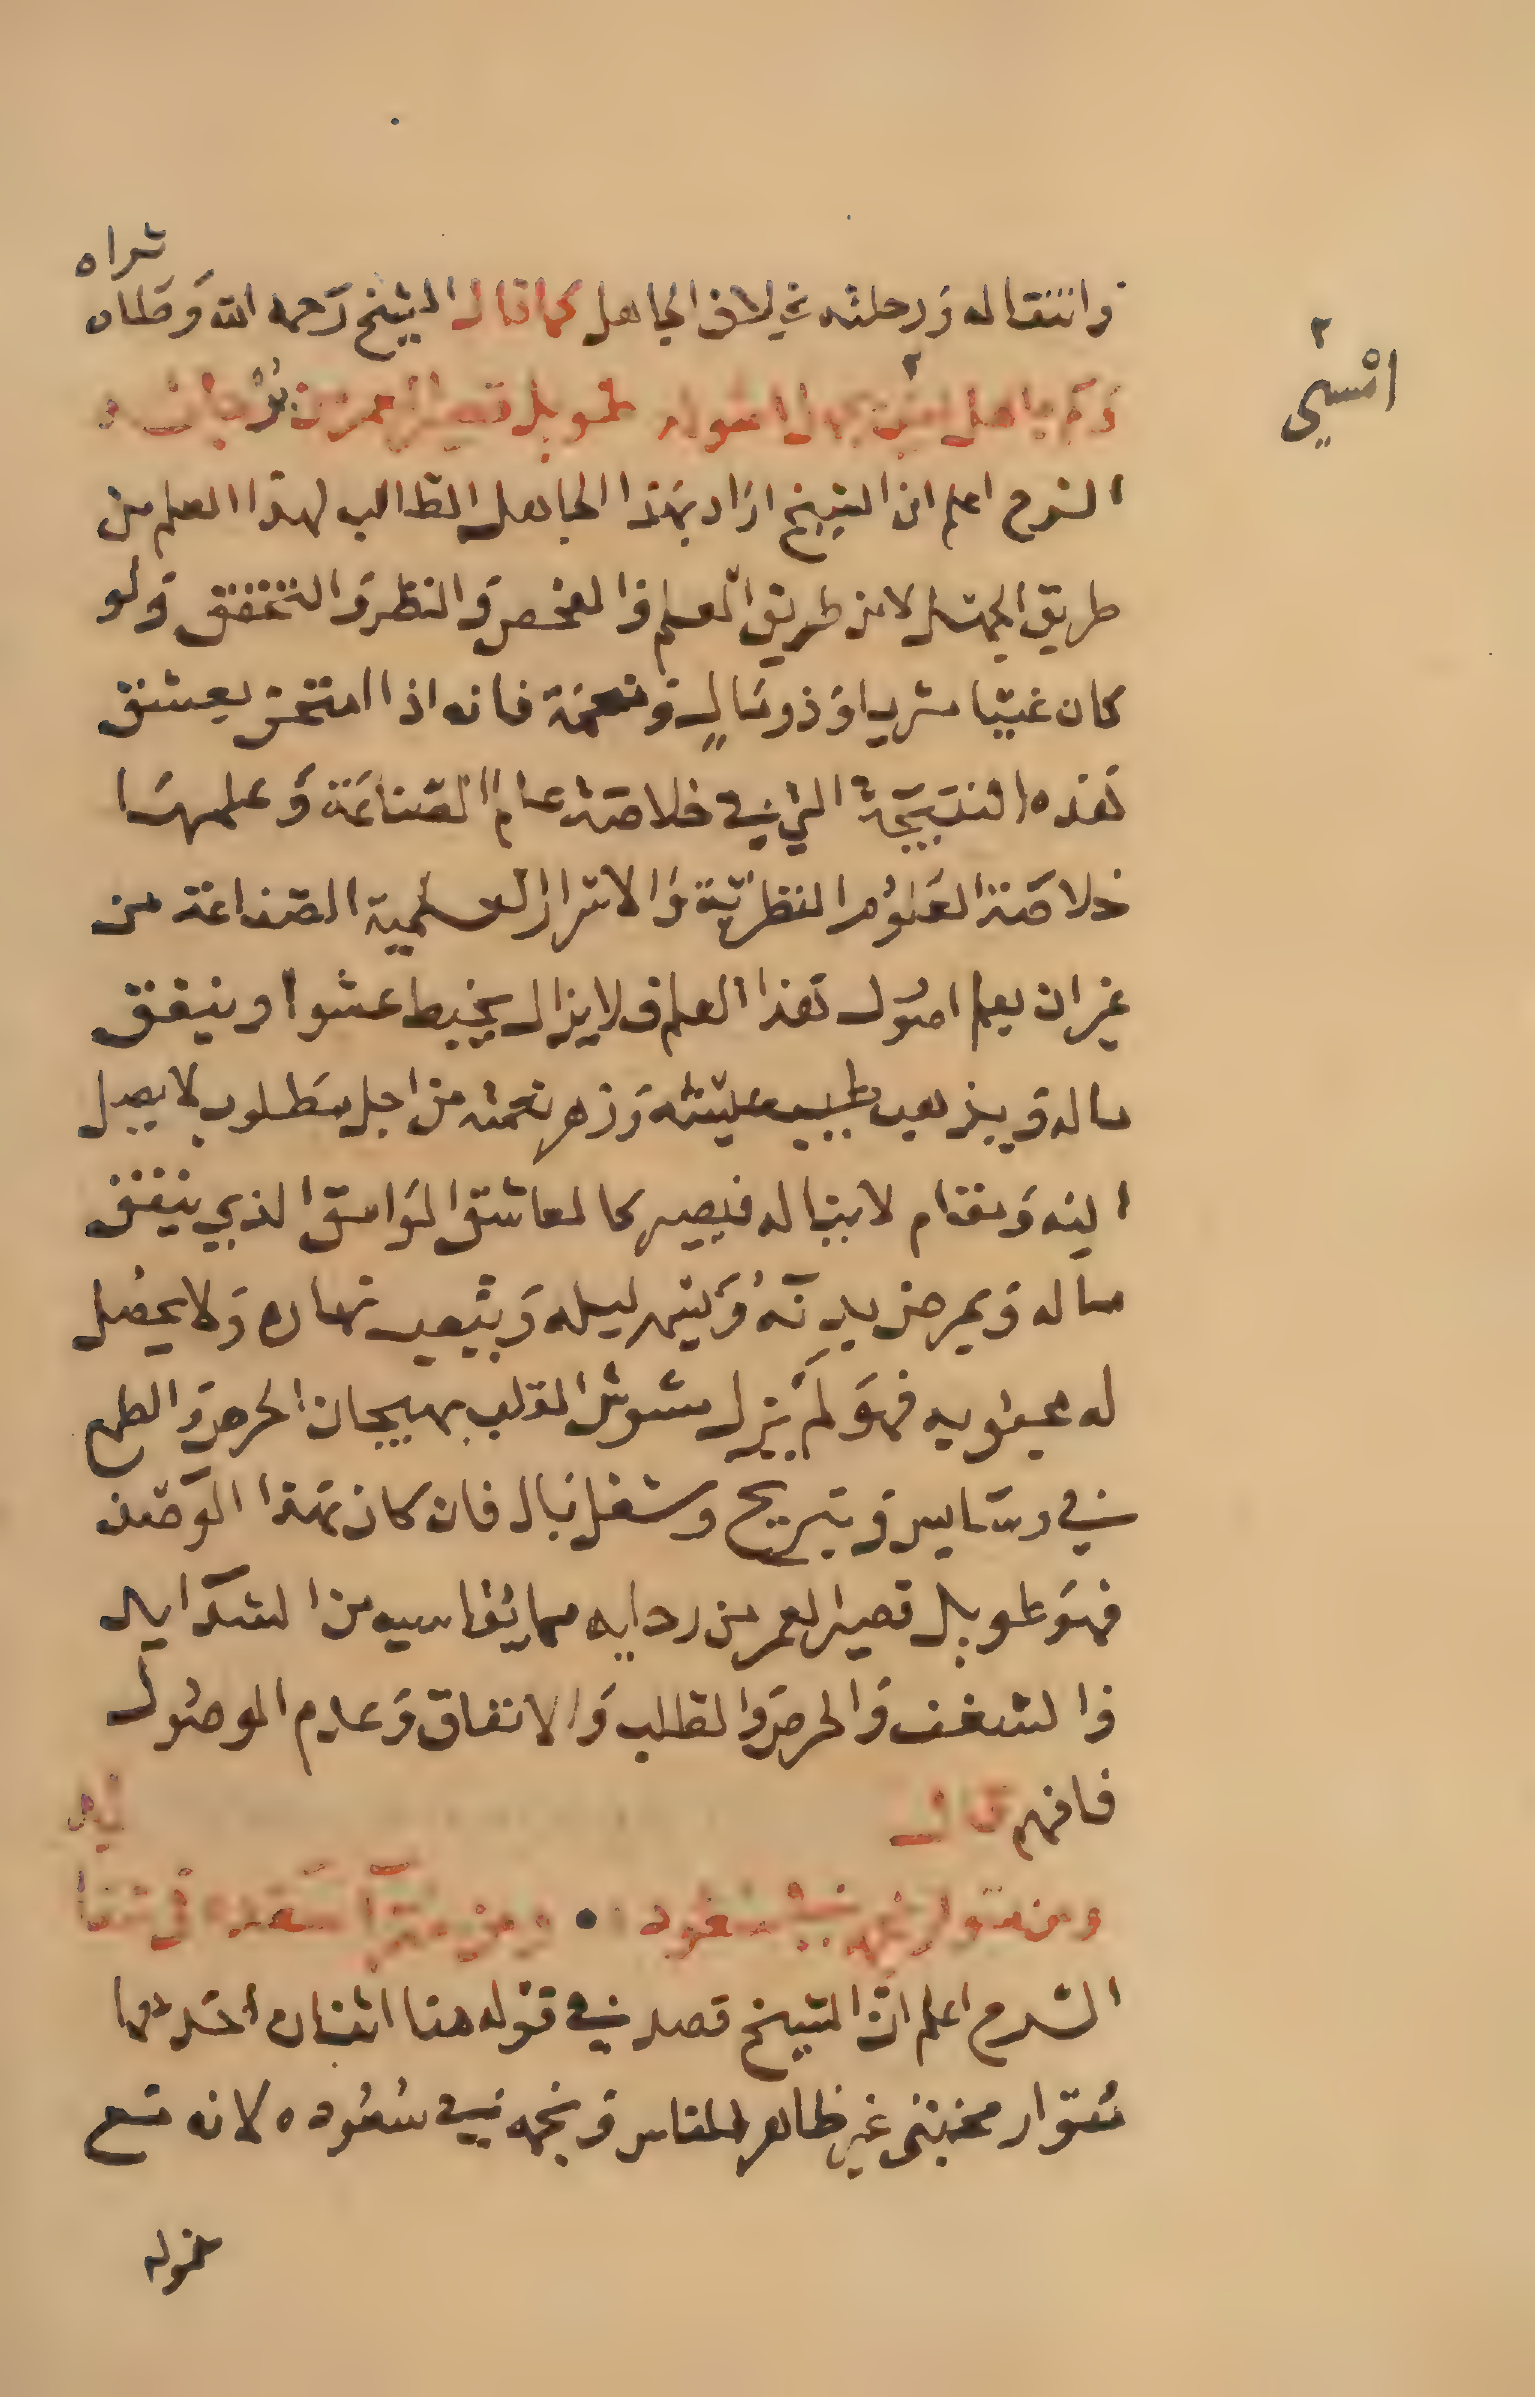 ثراه
وانتقاله ورحلته بخلاف الجاهل كما قال الشيخ رحمه الله وطاب
امسي
وكم جاهل بجهل اصوله طويل قصير العمر من
الشرح اعلم ان الشيخ اراد بهذا الجاهل الطالب لهذا العلم من
طريق الجهل لا من طريق العلم والفحص والنظر والتحقق ولو
كان غنيا مثريا وذو مال ونعمة فانه اذا امتحن بعشق
هذه النتيجة التي هي خلاصة عام الصناعة وعلمها
خلاصة العلوم النظرية والاسرار العلمية الصناعة من
غير ان يعلم اصول هذا العلم فلا يزال يخبط عشوا وينفق
ماله ويذهب طيب عيشه وزهر نعمته من اجل مطلوب لا يصل
اليه ومقام لا يناله فيصير كالعاشق الوامق الذي ينفق
ماله ويمرض بدنه ويسهر ليله ويتعب نهاره ولا يحصل
له محبوبه فهو لم يزل مشوش القلب بهيجان الحرص والطمع
في وساوس وتبريح وشغل بال فان كان بهذا الوصف
فهو طويل قصير العمر من ردايه مما يقاسيه من الشدايد
والشغف والحرص والطلب والانفاق وعدم الوصول
فافهم قال
ومن متوار نجمه في سعوده ومن مترا سعده في
الشرح اعلم ان الشيخ قصد في قوله هنا اثنان احدهما
متوار مختفي غير ظاهر للناس ونجمه في سعوده لانه مع
خموله